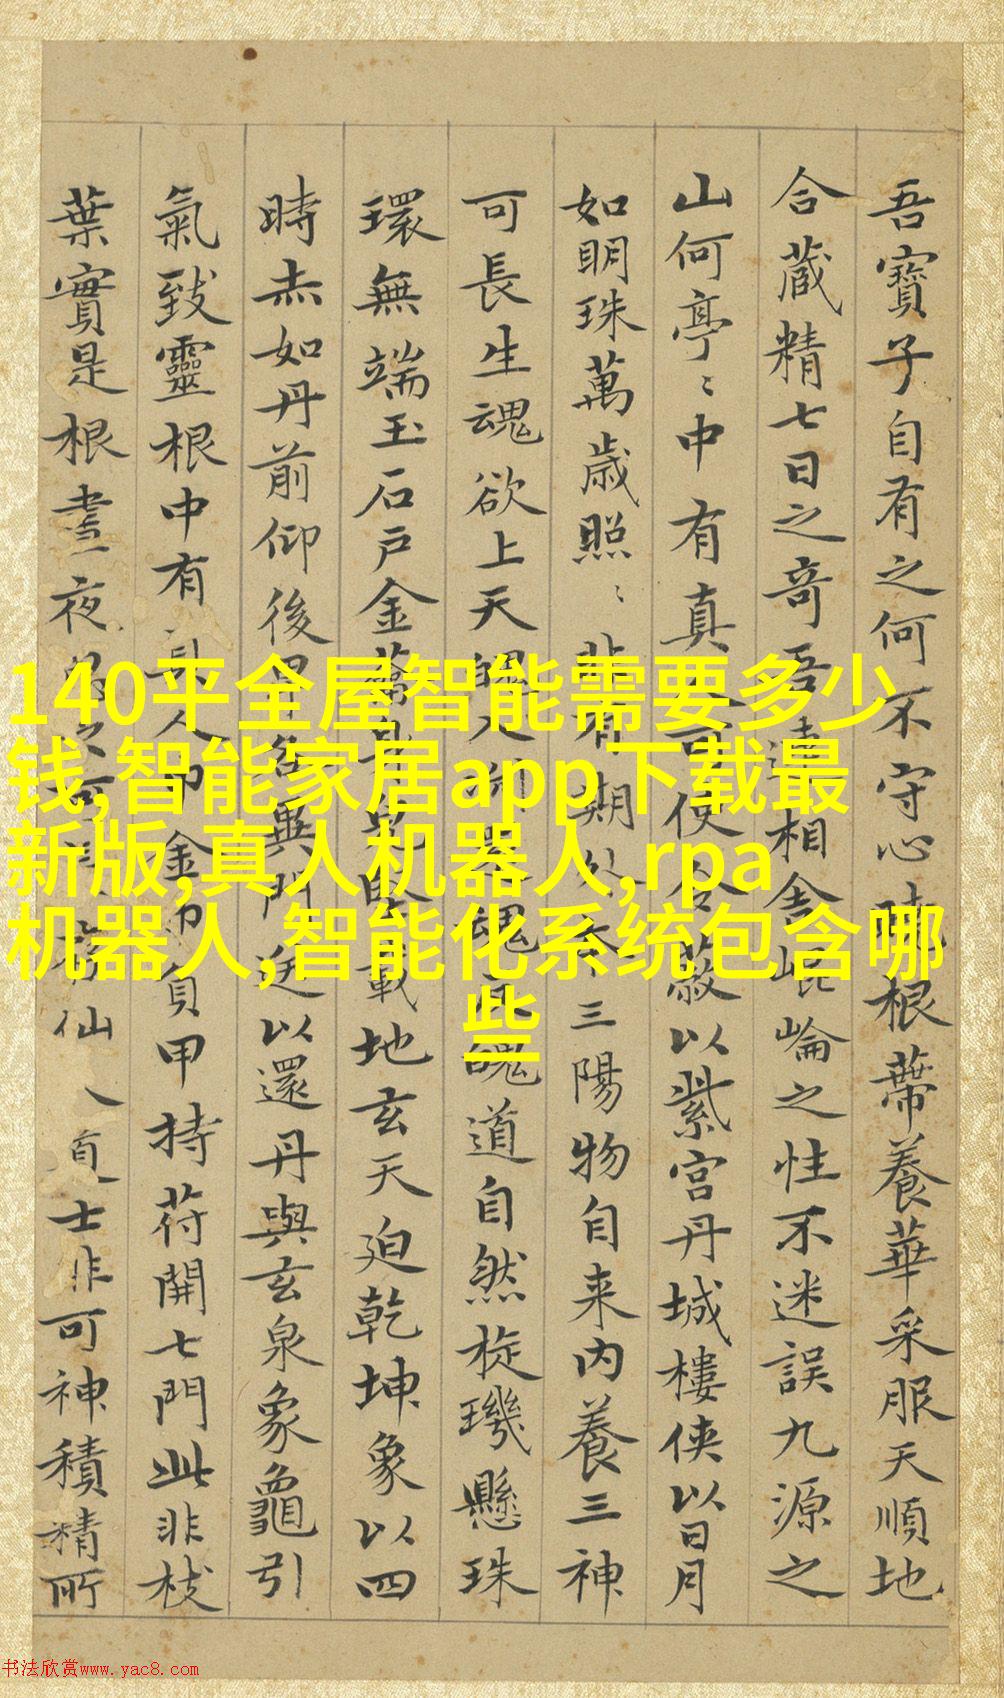 吾寶子自有之何不守心曉根蒂養華采服天順地
合藏精七日之奇吾連相舍崐崘之性不迷誤九源之
山何亭〻中有真人可使令蔽以紫宮丹城樓侠以日月
如明珠萬歲照〻非有期外本三陽物自来内養三神
可長生魂欲上天魄入淵還魂反魄道自然旋璣懸珠
環無端玉石戶金籥身完堅載地玄天迫乾坤象以四
時赤如丹前仰後卑各異門送以還丹與玄泉象龜引
氣致靈根中有真人巾金巾負甲持苻開七門此非枝
葉實是根晝夜思之可長存仙人道士非可神積精所
140平全屋智能需要多少
钱,智能家居app下载最
新版,真人机器人,rpa
机器人,智能化系统包含哪
些
书法欣赏www.yac8.com